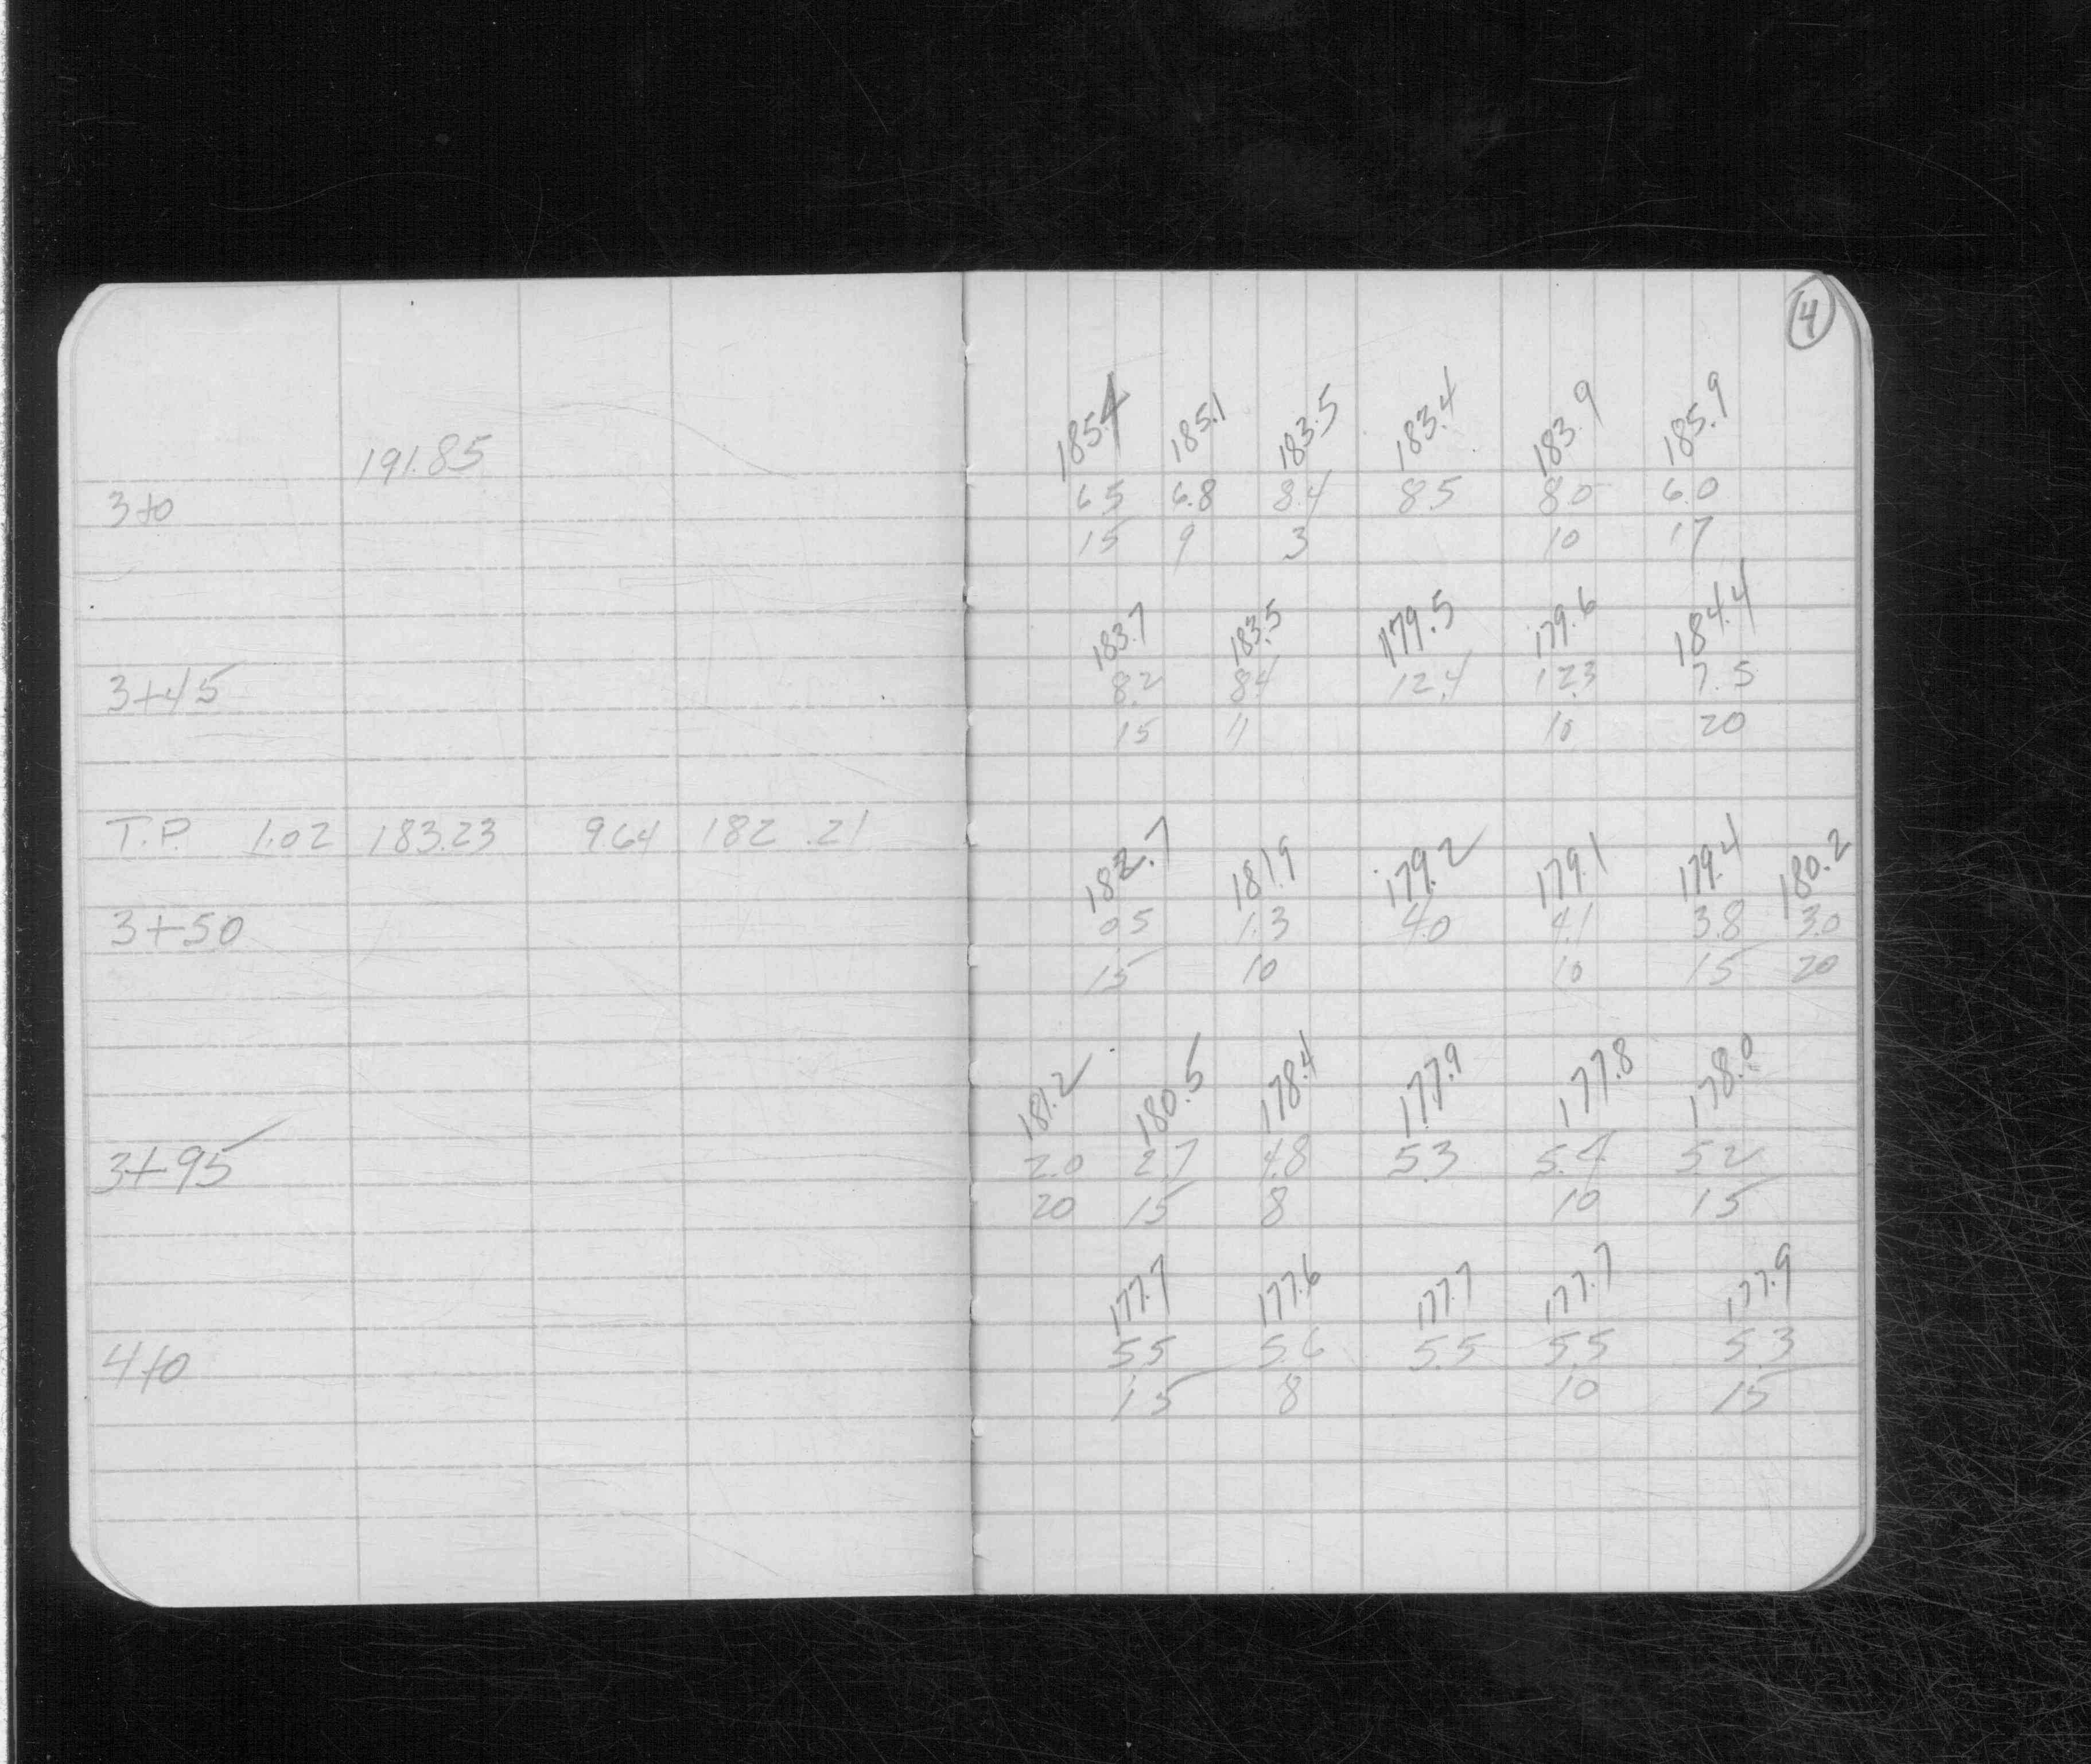 4
185.4 185.1 183.5 183.4 183.9 185.9
191.85
3+0 6.5 6.8 8.4 8.5 8.0 6.0
15 9 3 10 17
183.7 183.5 179.5 179.6 184.4
3+45 8.2 8.4 12.4 12.3 7.5
15 11 10 20
T.P. 1.02 183.23 9.64 182.21
182.7 181.9 179.2 179.1 179.4 180.2
3+50 0.5 1.3 4.0 4.1 3.8 3.0
15 10 10 15 20
181.2 180.5 178.4 177.9 177.8 178.0
3+95 2.0 2.7 4.8 5.3 5.4 5.2
20 15 8 10 15
177.7 177.6 177.7 177.7 177.9
4+0 5.5 5.6 5.5 5.5 5.3
15 8 10 15